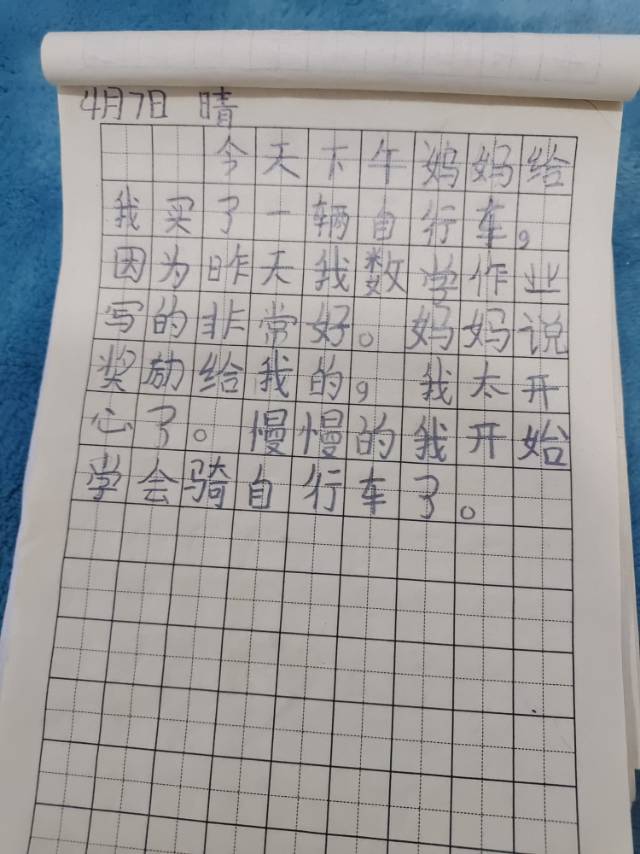 4月7日 晴
今天下午妈妈给
我买了一辆自行车，
因为昨天我数学作业
写的非常好。妈妈说
奖励给我的，我太开
心了。慢慢的我开始
学会骑自行车了。